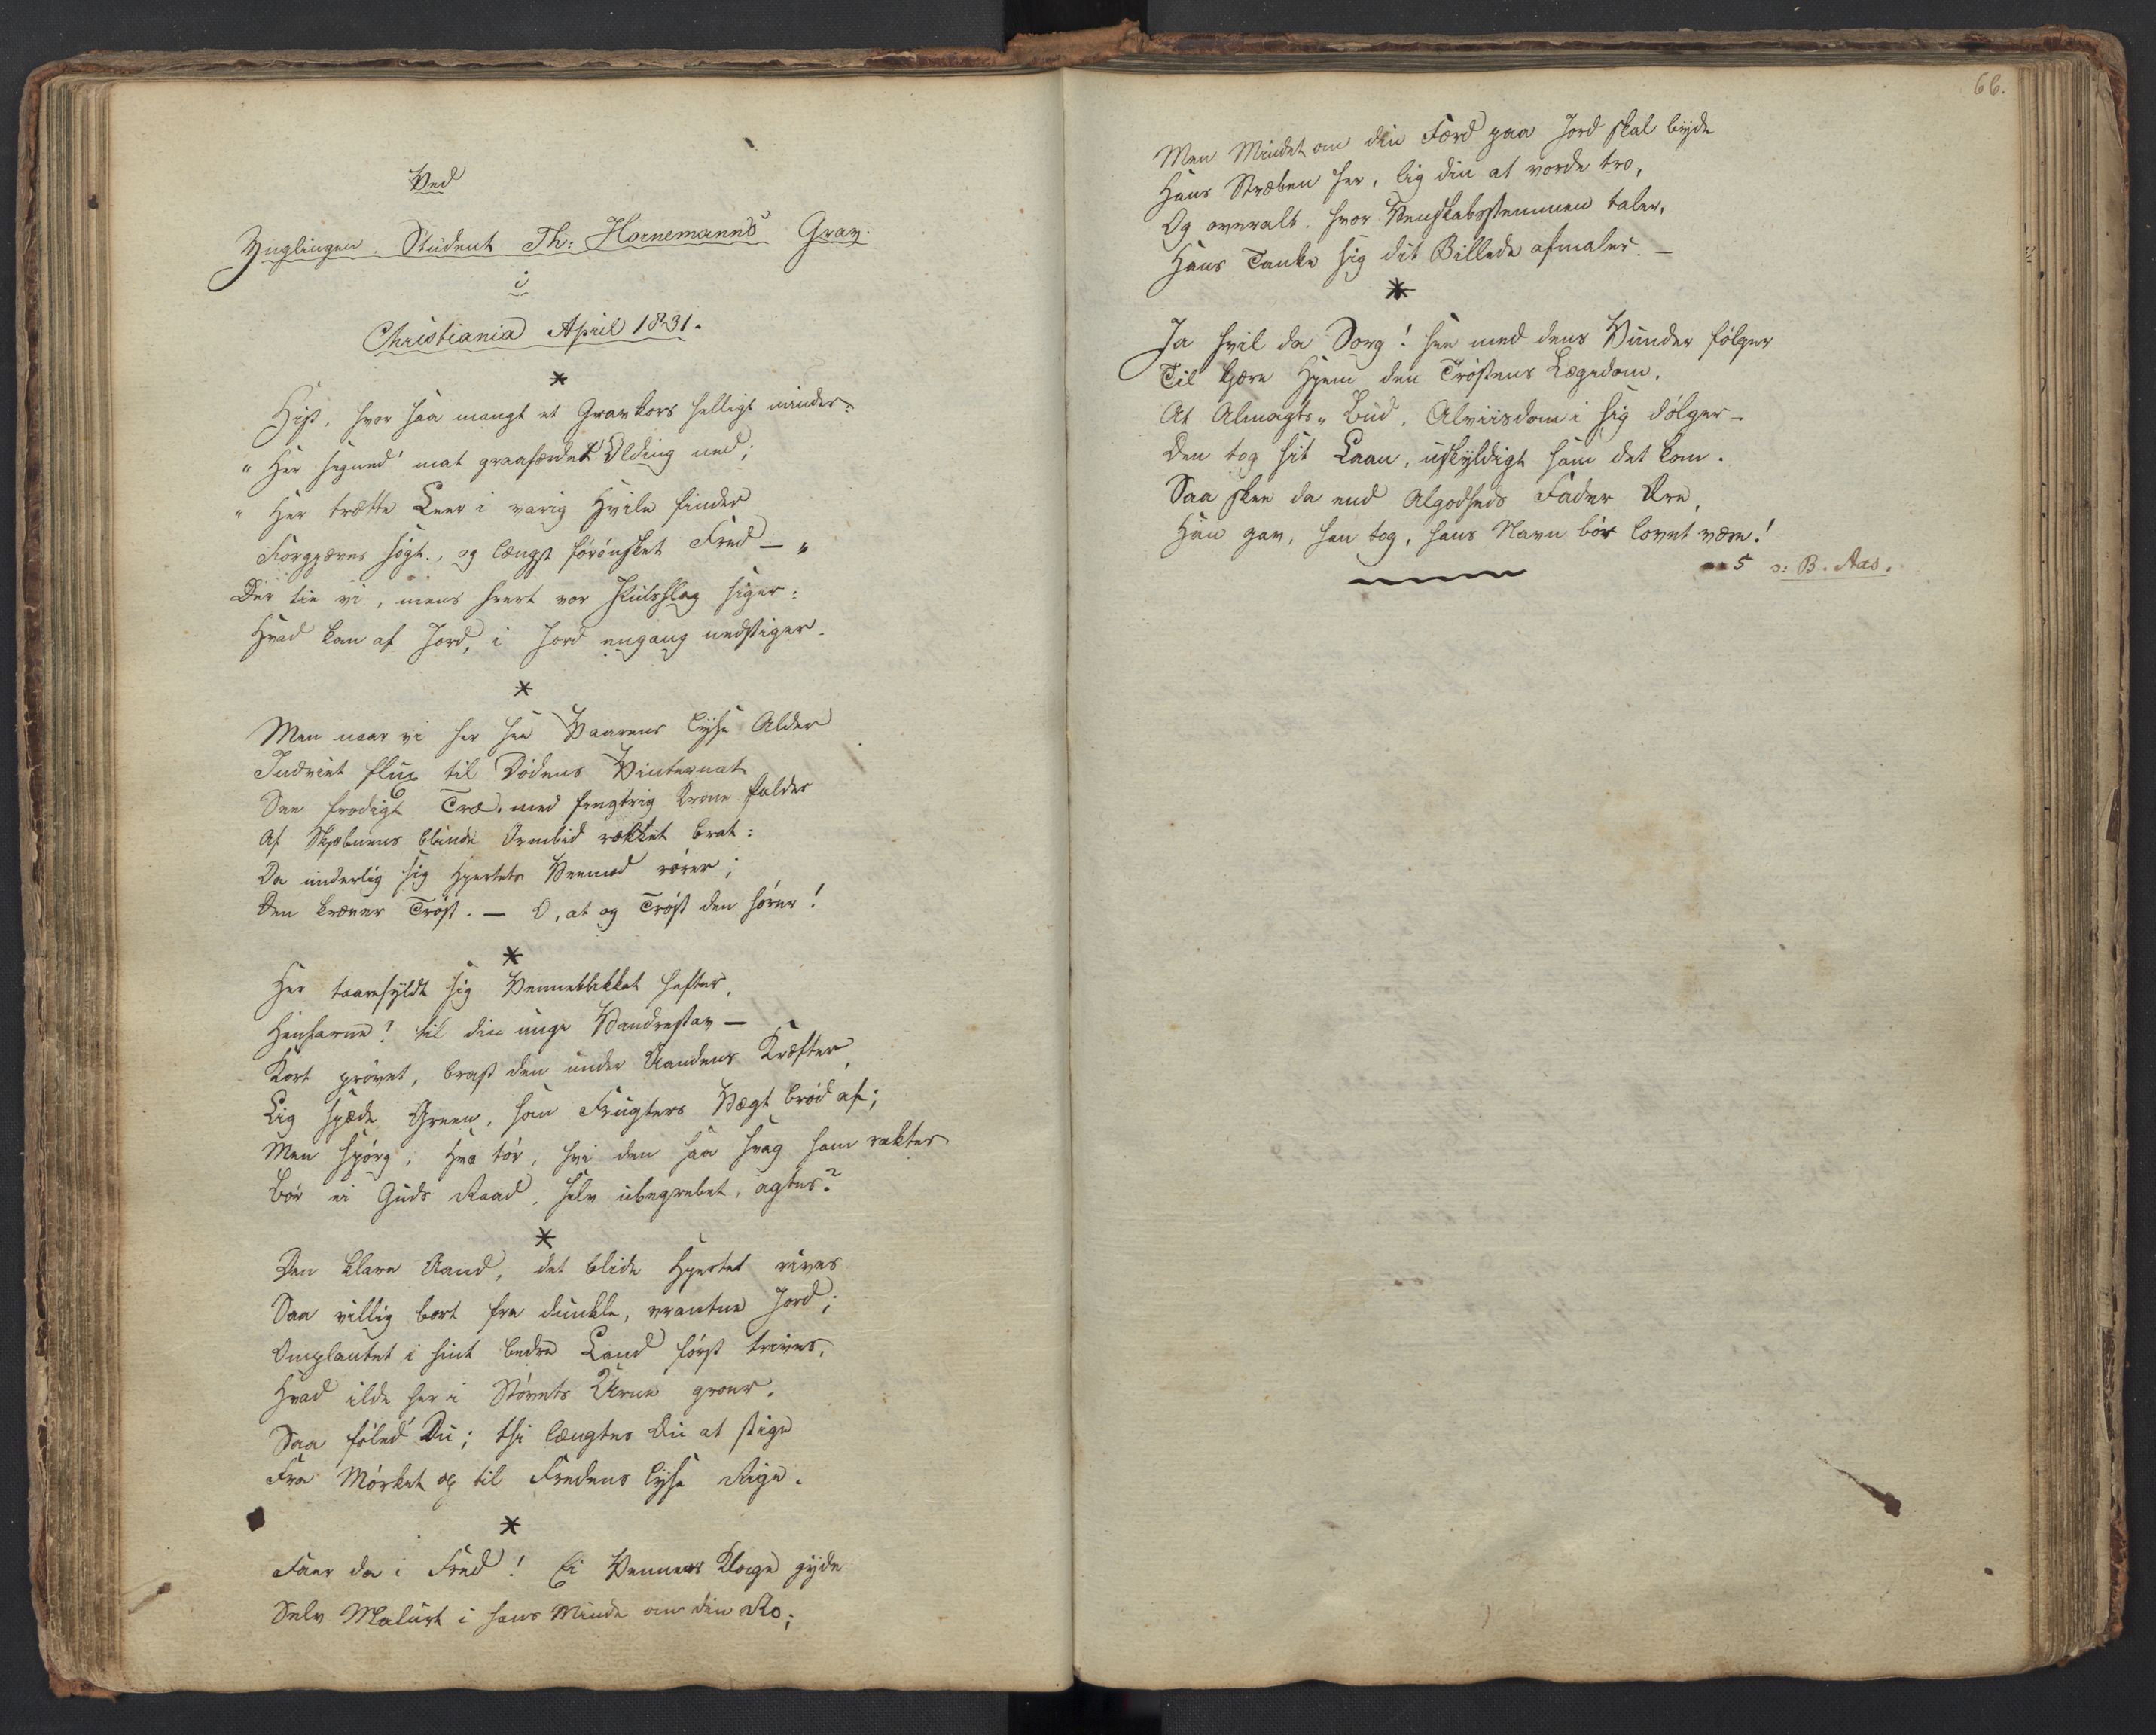 Ved
Ynglingen, Student Th: Hornemanns Grav.
i
Christiania April 1831.
*
Hist, hvor saa mangt et Gravkors helligt minder:
" Her segned' mat graahærdet Olding ned;
" Her trætte Leer i varig Hvile finder
Forgjæves søgt, og længst forønsket Fred — "
Der tie vi, mens hvert vor Pulsslag siger:
Hvad kom af Jord, i Jord engang nedstiger.
*
Men naar vi her see Vaarens lyse Alder
Indviet flux til Dødens Vinternat
See frodigt Træ, med frugtrig Krone falder
Af Skjæbnens blinde Ormbid rækket brat:
Da inderlig sig Hjertets Veemod rører;
Den kræver Trøst. — O, at og Trøst den hører!
*
Her taarefyldt sig Venneblikket hefter,
Henfarne! til din unge Vandrestav —
Kort prøvet, brast den under Aandens Kræfter,
Lig spæde Green, som Frugters Vægt brød af;
Men spørg, Hvo tør, hvi den saa svag ham raktes
Bør ei Guds Raad, selv ubegrebet, agtes?
*
Den klare Aand, det blide Hjertet rives
Saa villig bort fra dunkle, vrantne Jord;
Omplantet i hint bedre Land først trives,
Hvad ilde her i Støvets Urne groer.
Saa føled' Du; thi længtes Du at stige
Fra Mørket op til Fredens lyse Rige.
*
Faer da i Fred! Ei Venners Klage gyde
Selv Malurt i hans Minde om din Ro;
66.
Men Mindet om din Færd paa Jord skal byde
Hans Stræben her, lig din at vorde tro,
Og overalt, hvor Venskabsstemmen taler,
Hans Tanke sig dit Billede afmaler. —
*
Ja hvil da Sorg! hen med dens Vunder følger
Til kjære Hjem den Trøstens Lægedom,
At Almagts " Bud, Alviisdom i sig dølger —
Den tog sit Laan, uskyldigt som det kom.
Saa skee da end Algodheds Fader Ære,
Han gav, han tog, hans Navn bør lovet være!
5 ɔ: B. Aas.